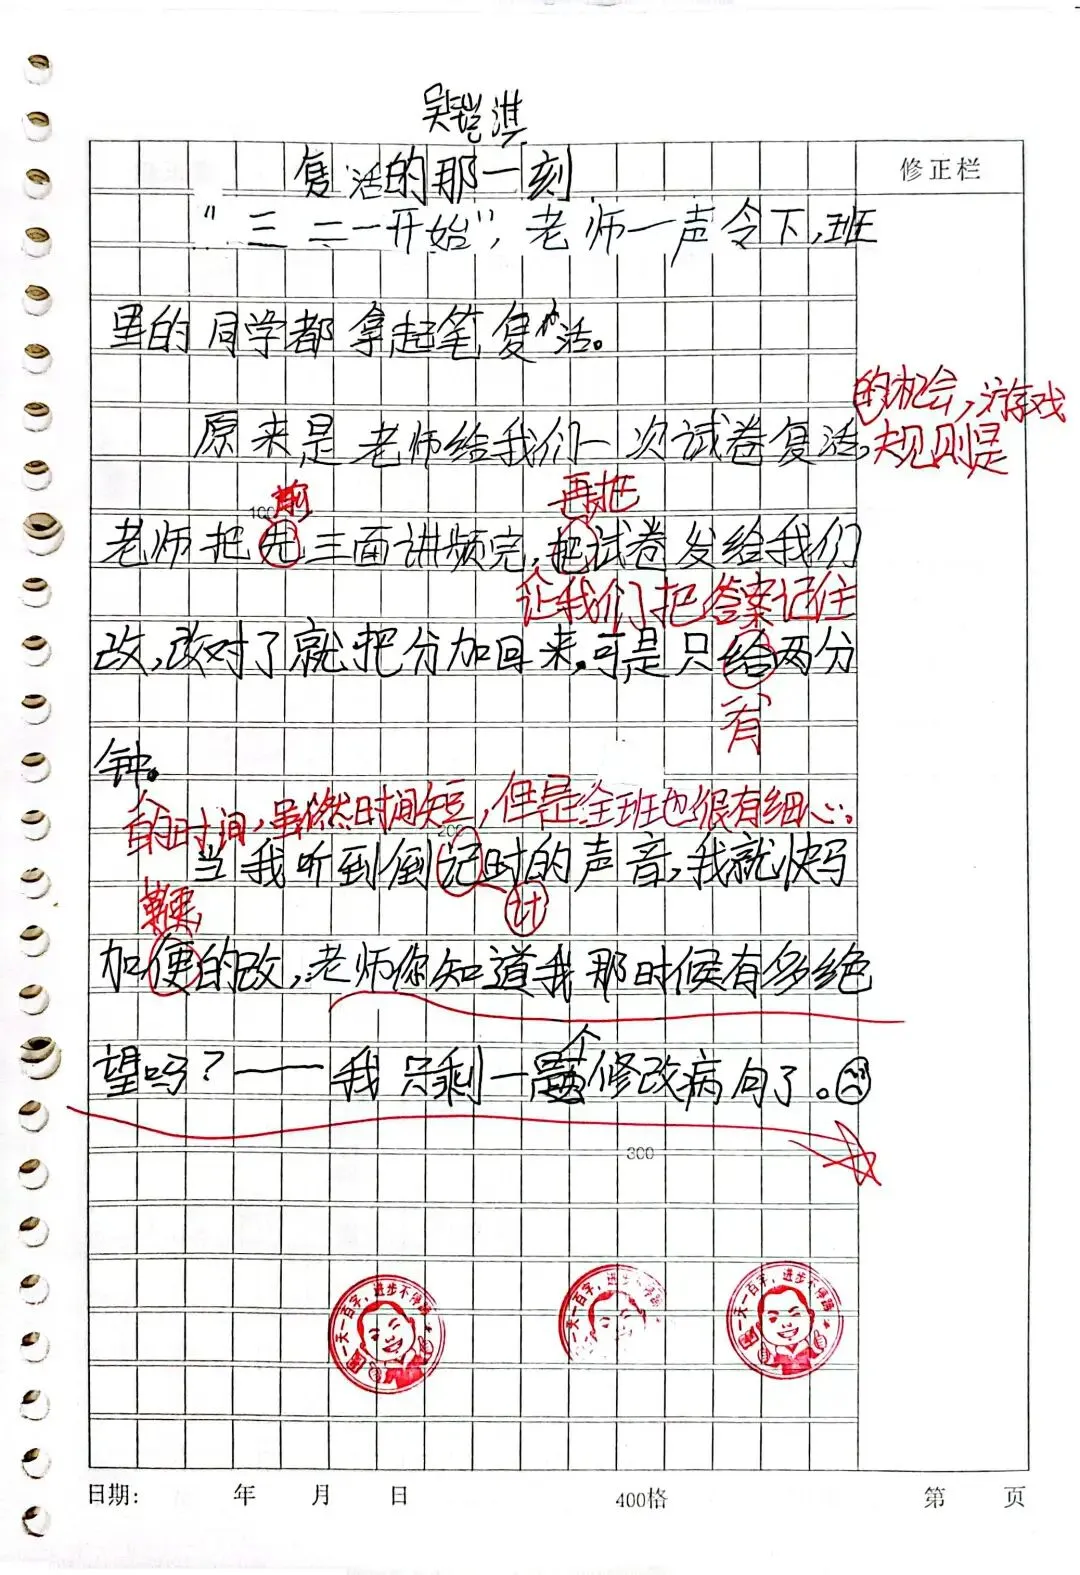 吴铠淇
复活的那一刻
修正栏
“三二一开始”，老师一声令下，班
里的同学都拿起笔复活。
的机会，游戏
原来是老师给我们一次试卷复活，规则是
100 前 再把
老师把先三面讲频完，把试卷发给我们
让我们把答案记住
改，改对了就把分加回来，可是只给两分
有
钟。
的时间，虽然时间短，但是全班也很有细心。
200
当我听到倒记时的声音，我就快马
鞭 计
加便的改，老师你知道我那时候有多绝
个
望吗？——我只剩一 修改病句了。
300
一天一百字，进步不停蹄
一天一百字，进步不停蹄
一天一百字，进步不停蹄
日期： 年 月 日 400格 第 页